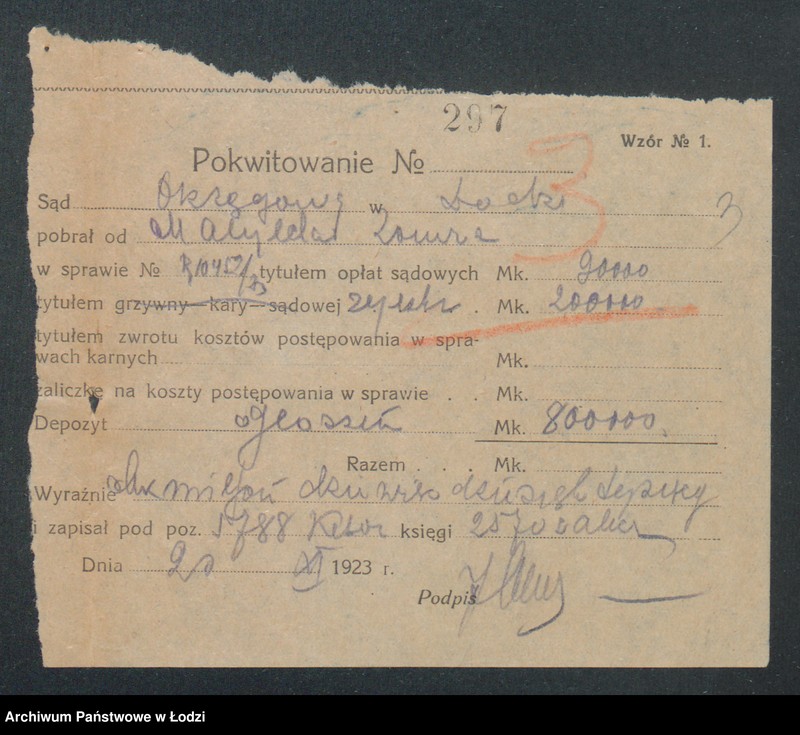 297
Wzór № 1.
Pokwitowanie №
3
Sąd Okręgowy w Łodzi
3
pobrał od Matylda
w sprawie № tytułem opłat sądowych Mk. 90000
tytułem grzywny—kary—sądowej . Mk. 200000
tytułem zwrotu kosztów postępowania w spra-
wach karnych Mk.
zaliczkę na koszty postępowania w sprawie . . Mk.
Depozyt ogłoszeń Mk. 800000
Razem . . . Mk.
Wyraźnie miljon dziesięć
i zapisał pod poz. 5788 księgi
Dnia XI 1923 r.
Podpis
Archiwum Państwowe w Łodzi